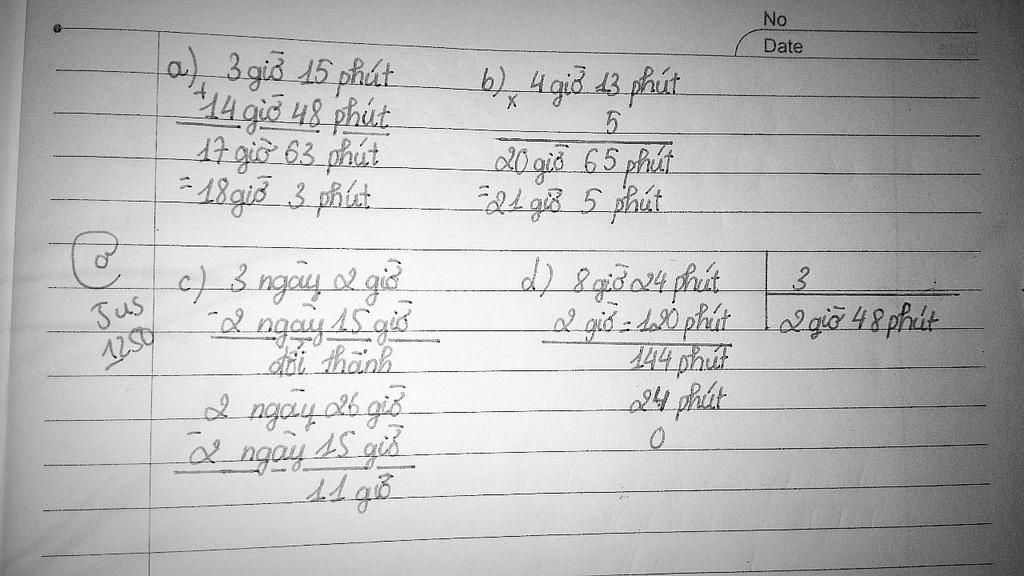 No
Date
a) 3 giờ 15 phút
+ 14 giờ 48 phút
17 giờ 63 phút
= 18 giờ 3 phút
b) 4 giờ 13 phút
x 5
20 giờ 65 phút
= 21 giờ 5 phút
Jus
1250
c) 3 ngày 2 giờ
- 2 ngày 15 giờ
đổi thành
2 ngày 26 giờ
- 2 ngày 15 giờ
11 giờ
d) 8 giờ 24 phút 3
2 giờ = 120 phút 2 giờ 48 phút
144 phút
24 phút
0